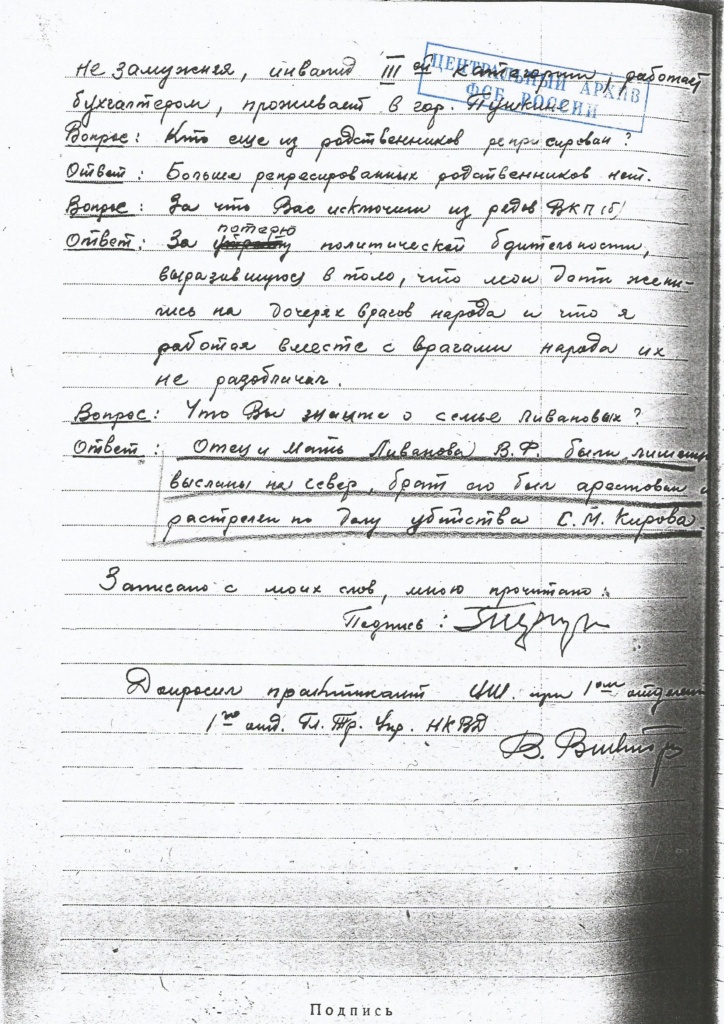 не замужняя, инвалид III ей категории, работает
ЦЕНТРАЛЬНЫЙ АРХИВ
ФСБ РОССИИ
бухгалтером, проживает в гор. Пушкине
Вопрос: Кто еще из родственников реприсирован?
Ответ: Больше репресированных родственников нет.
Вопрос: За что Вас исключили из рядов ВКП(б)
потерю
Ответ: За утрату политической бдительности,
выразившуюся в том, что мои дети жени-
лись на дочерях врагов народа и что я
работая вместе с врагами народа их
не разоблачал.
Вопрос: Что Вы знаите о семье Ливановых?
Ответ: Отец и мать Ливанова В.Ф. были лишены
высланы на север, брат его был арестован и
растрелен по делу убийства С.М. Кирова.
Записано с моих слов, мною прочитано:
Подпись:
Допросил практикант ЦШ. при 1ом отделен
1го отд. Гл. Тр. Упр. НКВД
В.
Подпись